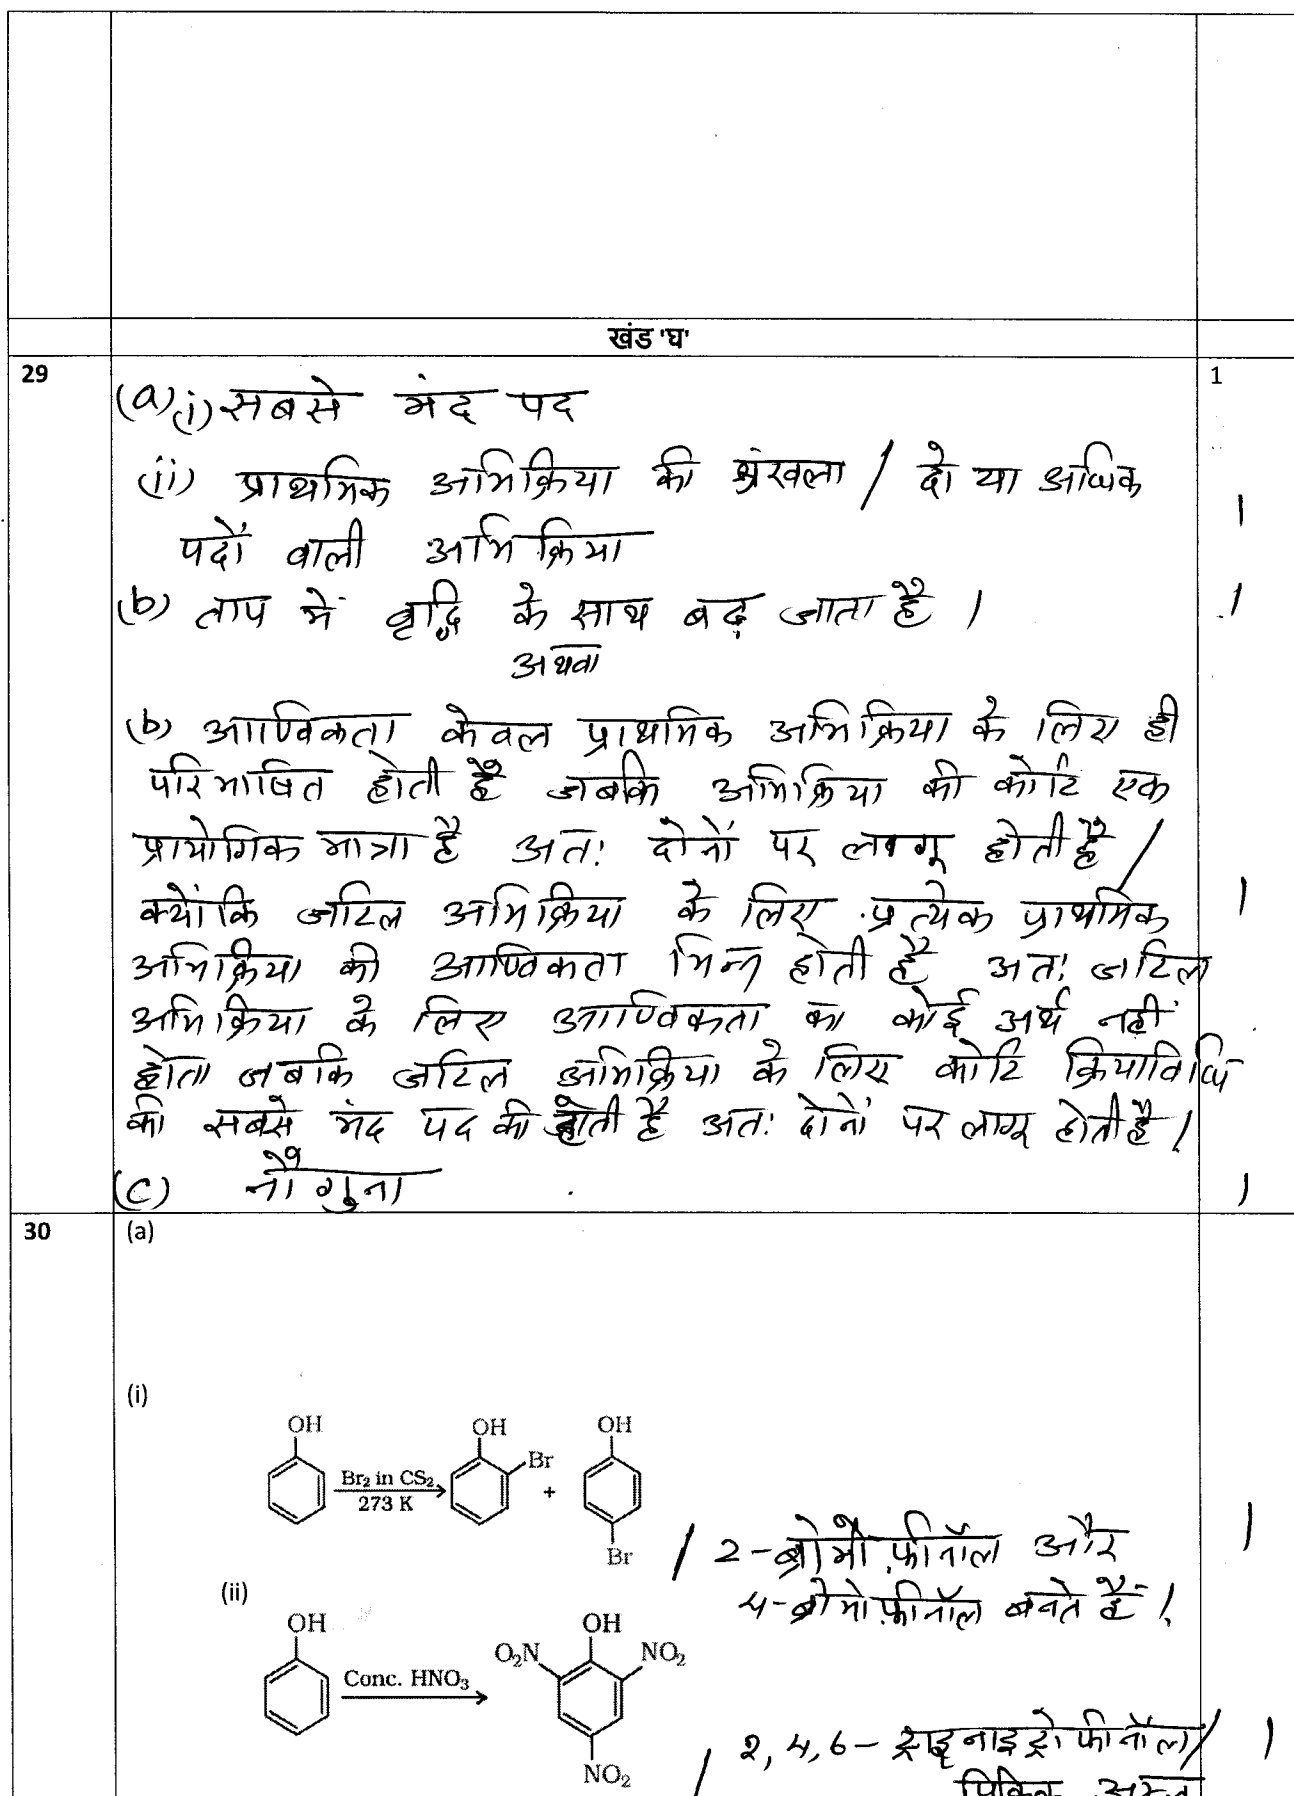 खंड 'घ'
29
1
(a) (i) सबसे मंद पद
(ii) प्राथमिक अभिक्रिया की श्रंखला / दो या अधिक
1
पदों वाली अभिक्रिया
(b) ताप में वृद्धि के साथ बढ़ जाता है ।
1
अथवा
(b) आण्विकता केवल प्राथमिक अभिक्रिया के लिए ही
परिभाषित होती है जबकि अभिक्रिया की कोटि एक
प्रायोगिक मात्रा है अत: दोनों पर लागू होती है /
क्योंकि जटिल अभिक्रिया के लिए प्रत्येक प्राथमिक
1
अभिक्रिया की आण्विकता भिन्न होती है अत: जटिल
अभिक्रिया के लिए आण्विकता का कोई अर्थ नहीं
होता जबकि जटिल अभिक्रिया के लिए कोटि क्रियाविधि
की सबसे मंद पद की होती है अत: दोनों पर लागू होती है ।
(c) नौ गुना
1
30
(a)
(i)
OH
OH
OH
Br₂ in CS₂
Br
273 K
+
Br
/ 2-ब्रोमोफ़ीनॉल और
1
4-ब्रोमोफ़ीनॉल बनते हैं ।
(ii)
OH
OH
O₂N
NO₂
Conc. HNO₃
NO₂
/ 2,4,6- ट्राइनाइट्रोफीनॉल /
1
पिक्रिक अम्ल